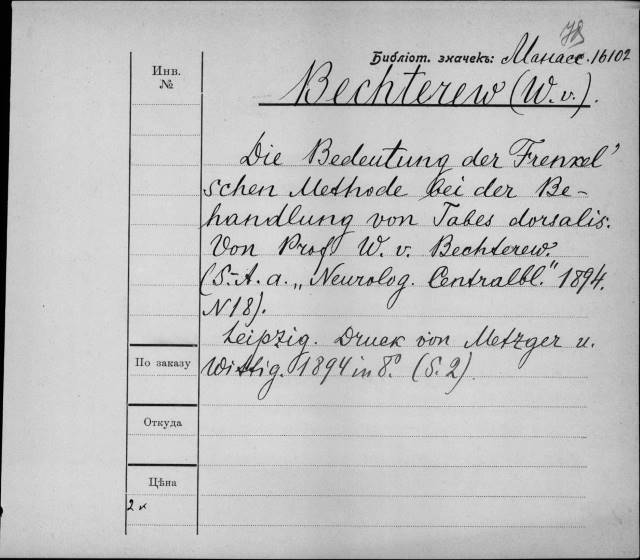 78
Библіот. значекъ: Манасс. 16102
Инв.
№
Bechterew (W. v.).
Die Bedeutung der Frenkel'
schen Methode bei der Be-
handlung von Tabes dorsalis.
Von Prof W. v. Bechterew.
(S.-A. a. „Neurolog. Centralbl." 1894.
N 18).
Leipzig. Druck von Metzger u.
Wittig. 1894 in 8°. (S. 2).
По заказу
Откуда
Цѣна
2 к